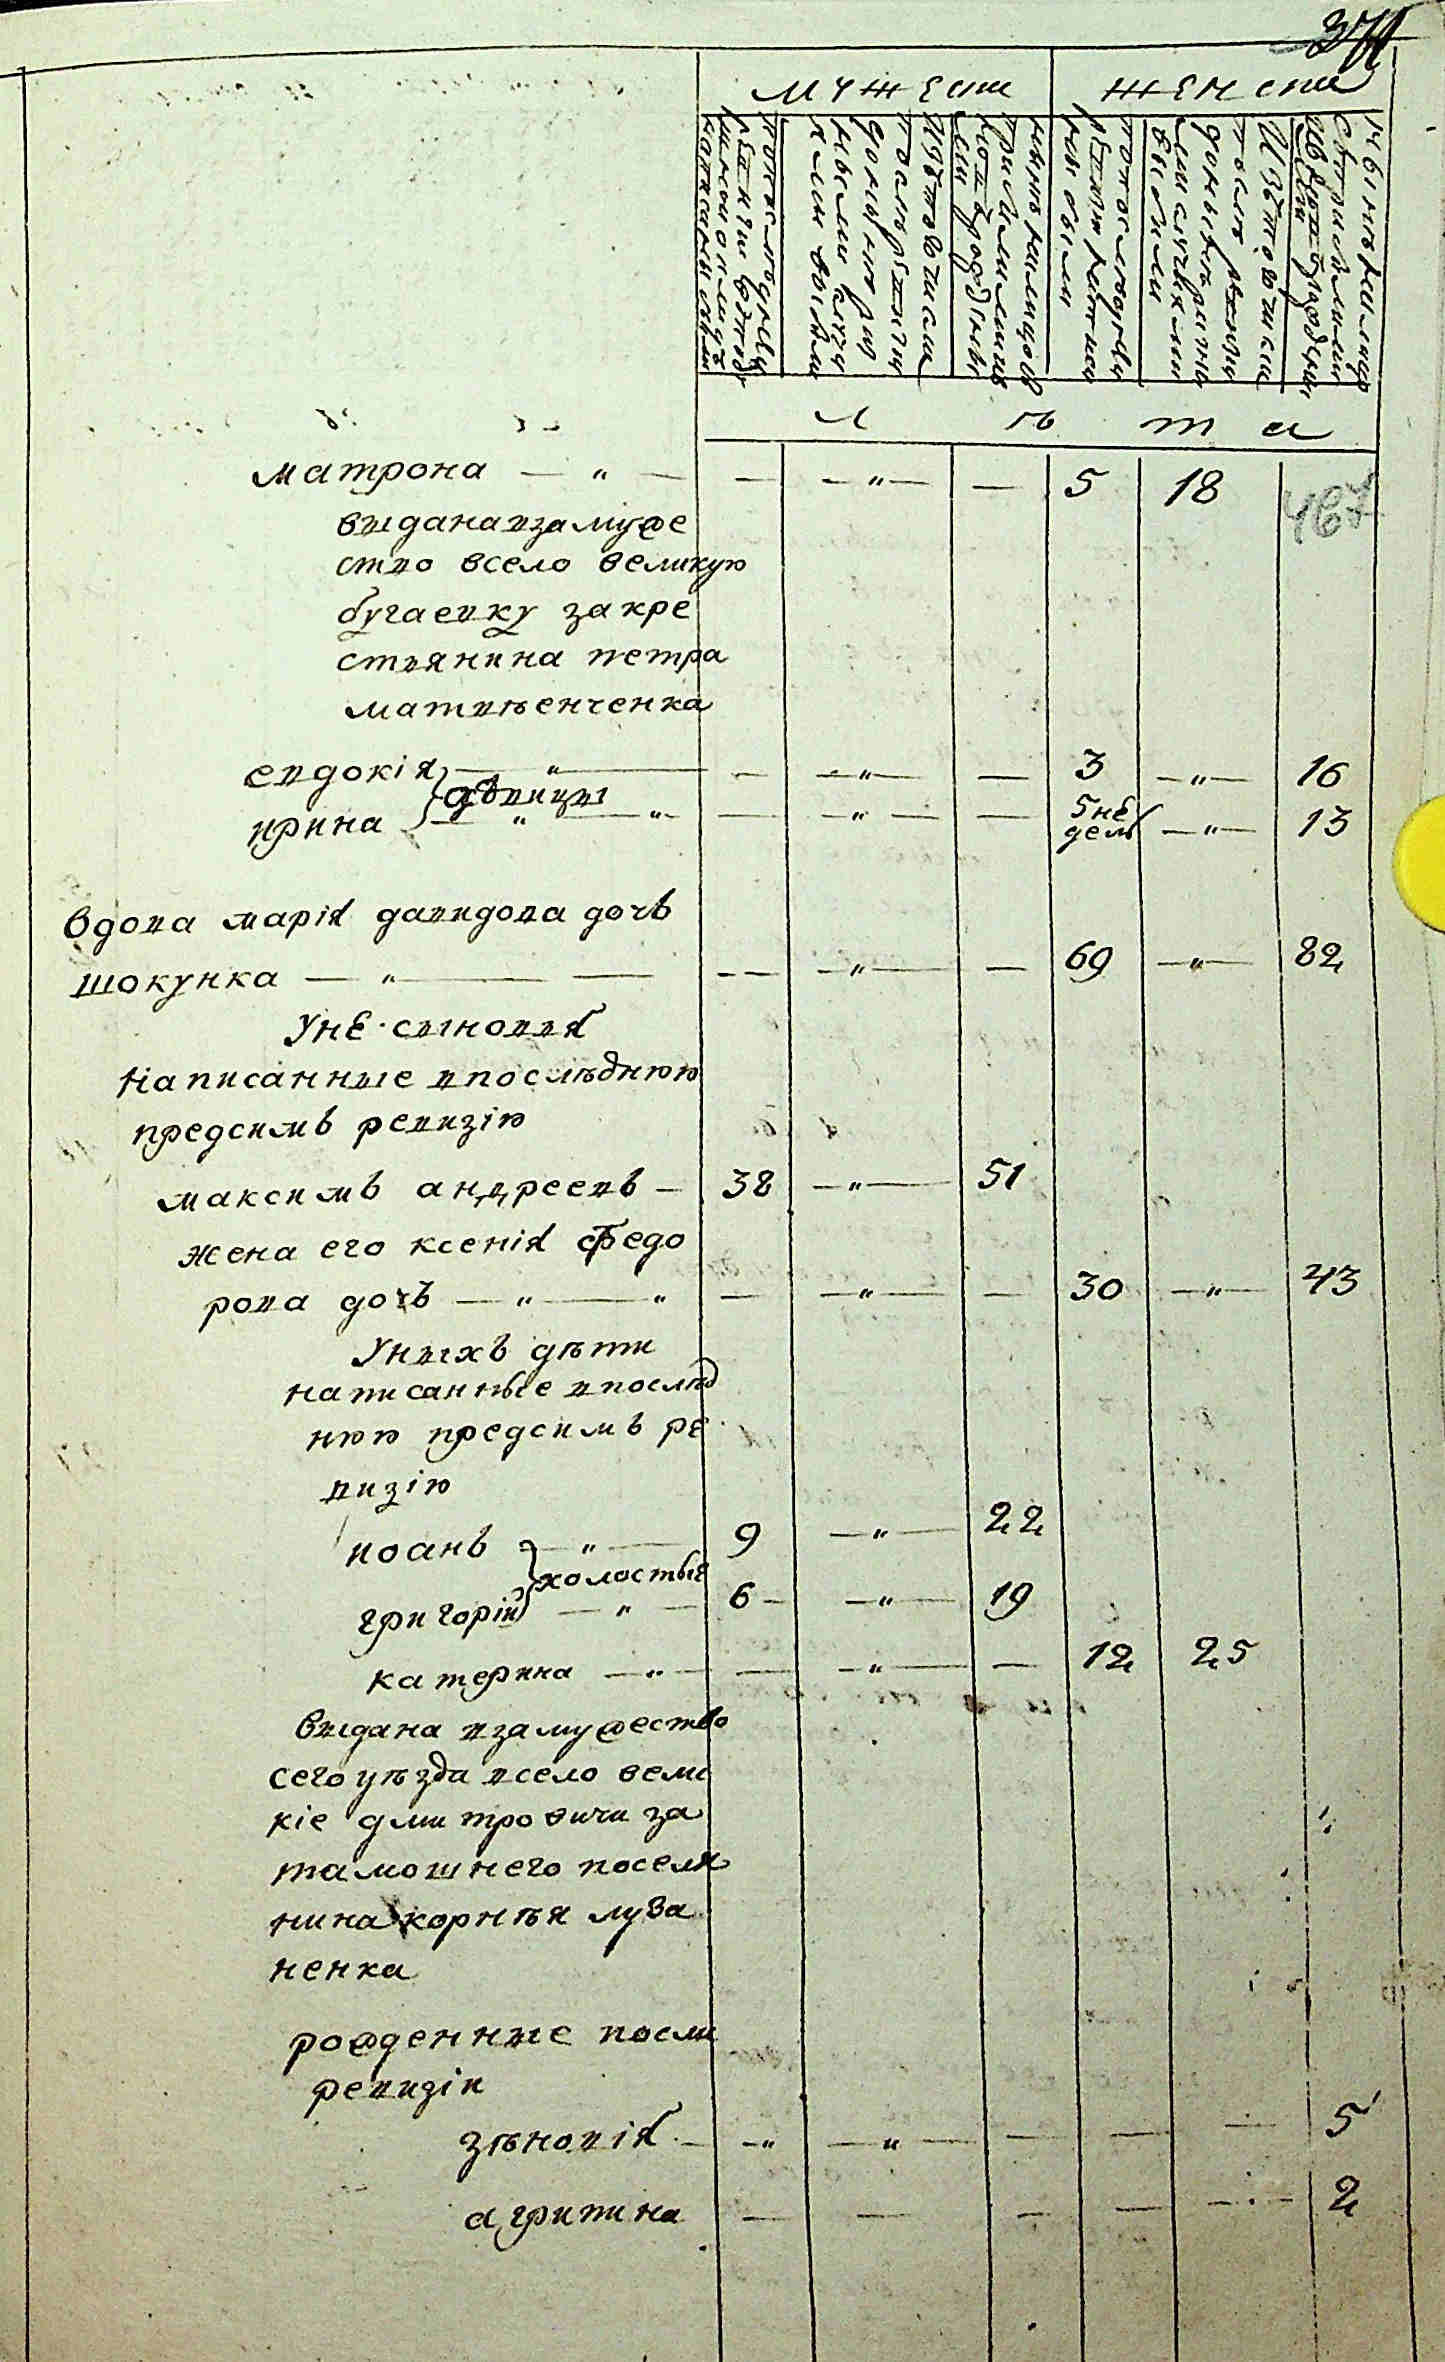 мужеска женска
л ѣ т а
матрона — „ — — — „ — — 5 18 467
выдана взамуже
ство всело великую
бугаевку закре
стянина петра
матвѣенченка
евдокія — „ — — — „ — — 3 — „ — 16
девицы
ирина — „ — „ — — — „ — — 5 не дель — „ — 13
вдова марія давидова дочь
шокунка — „ — — — — — „ — — 69 — „ — 82
Уне сыновья
написанные впослѣднюю
предсимъ ревизію
максимъ андреевъ — 38 — „ — 51
жена его ксенія федо
рова дочъ — „ — „ — — „ — — 30 — „ — 43
Уныхъ дѣти
написанные впослѣд
нюю предсимъ ре
визію
иоанъ — „ — 9 — „ — 22
холостые
григорій — „ — 6 — — „ — 19
катерина — „ — — — „ — — 12 25
выдана взамужество
сего уѣзда всело вели
кіе дмитровичи за
тамошнего поселя
нина корнѣя луза
ненка
рожденные посли
ревизіи
зѣновія — — „ — „ — — — — 5
агрипина — — — — — 2